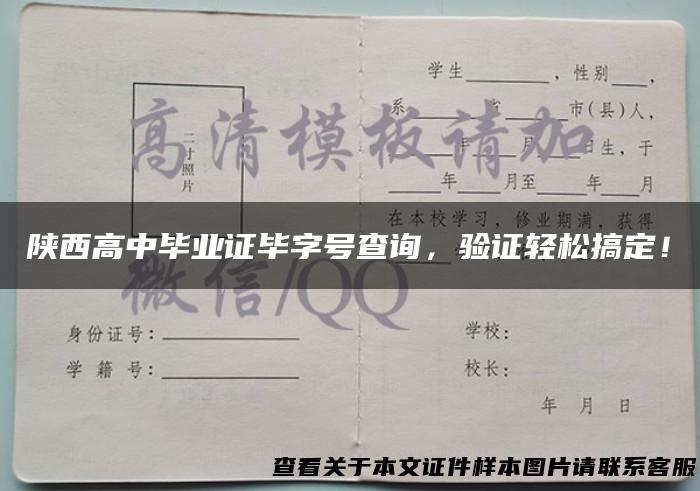 学生________，性别___，
系________省________市(县)人，
____年____月____日生，于
____年____月至____年____月
在本校学习，修业期满，获得
二寸照片
高清模板请加
微信/QQ
陕西高中毕业证毕字号查询，验证轻松搞定！
身份证号：
学籍号：
学校：
校长：
年 月 日
查看关于本文证件样本图片请联系客服